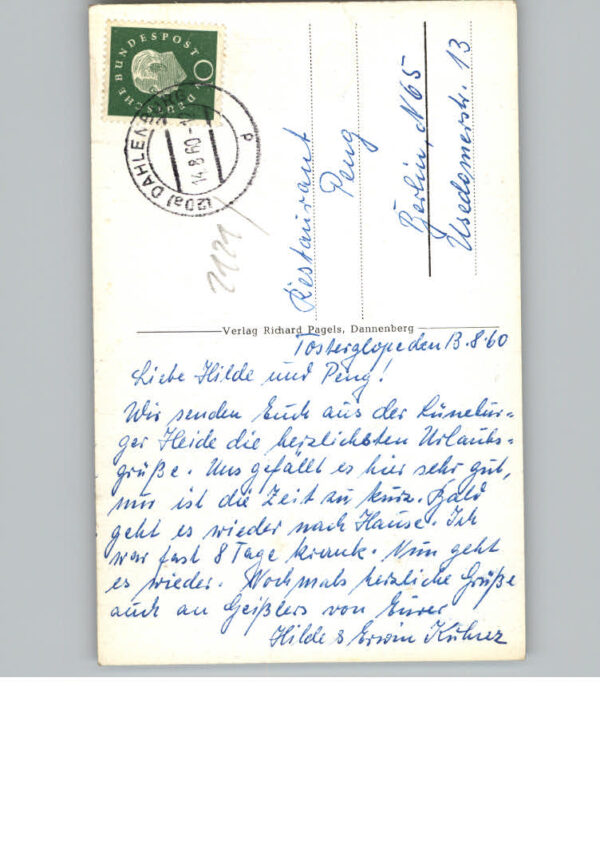 DEUTSCHE BUNDESPOST
(20a) DAHLENBURG
14.8.60
d
2121
Restaurant
Peng
Berlin, N65
Usedomerstr. 13
Verlag Richard Pagels, Dannenberg
Tosterglope den 13.8.60
Liebe Hilde und Peng!
Wir senden Euch aus der Lünebur=
ger Heide die herzlichsten Urlaubs=
grüße. Uns gefällt es hier sehr gut,
nur ist die Zeit zu kurz. Bald
geht es wieder nach Hause. Ich
war fast 8 Tage krank. Nun geht
es wieder. Nochmals herzliche Grüße
auch an Geißlers von Eurer
Hilde & Erwin